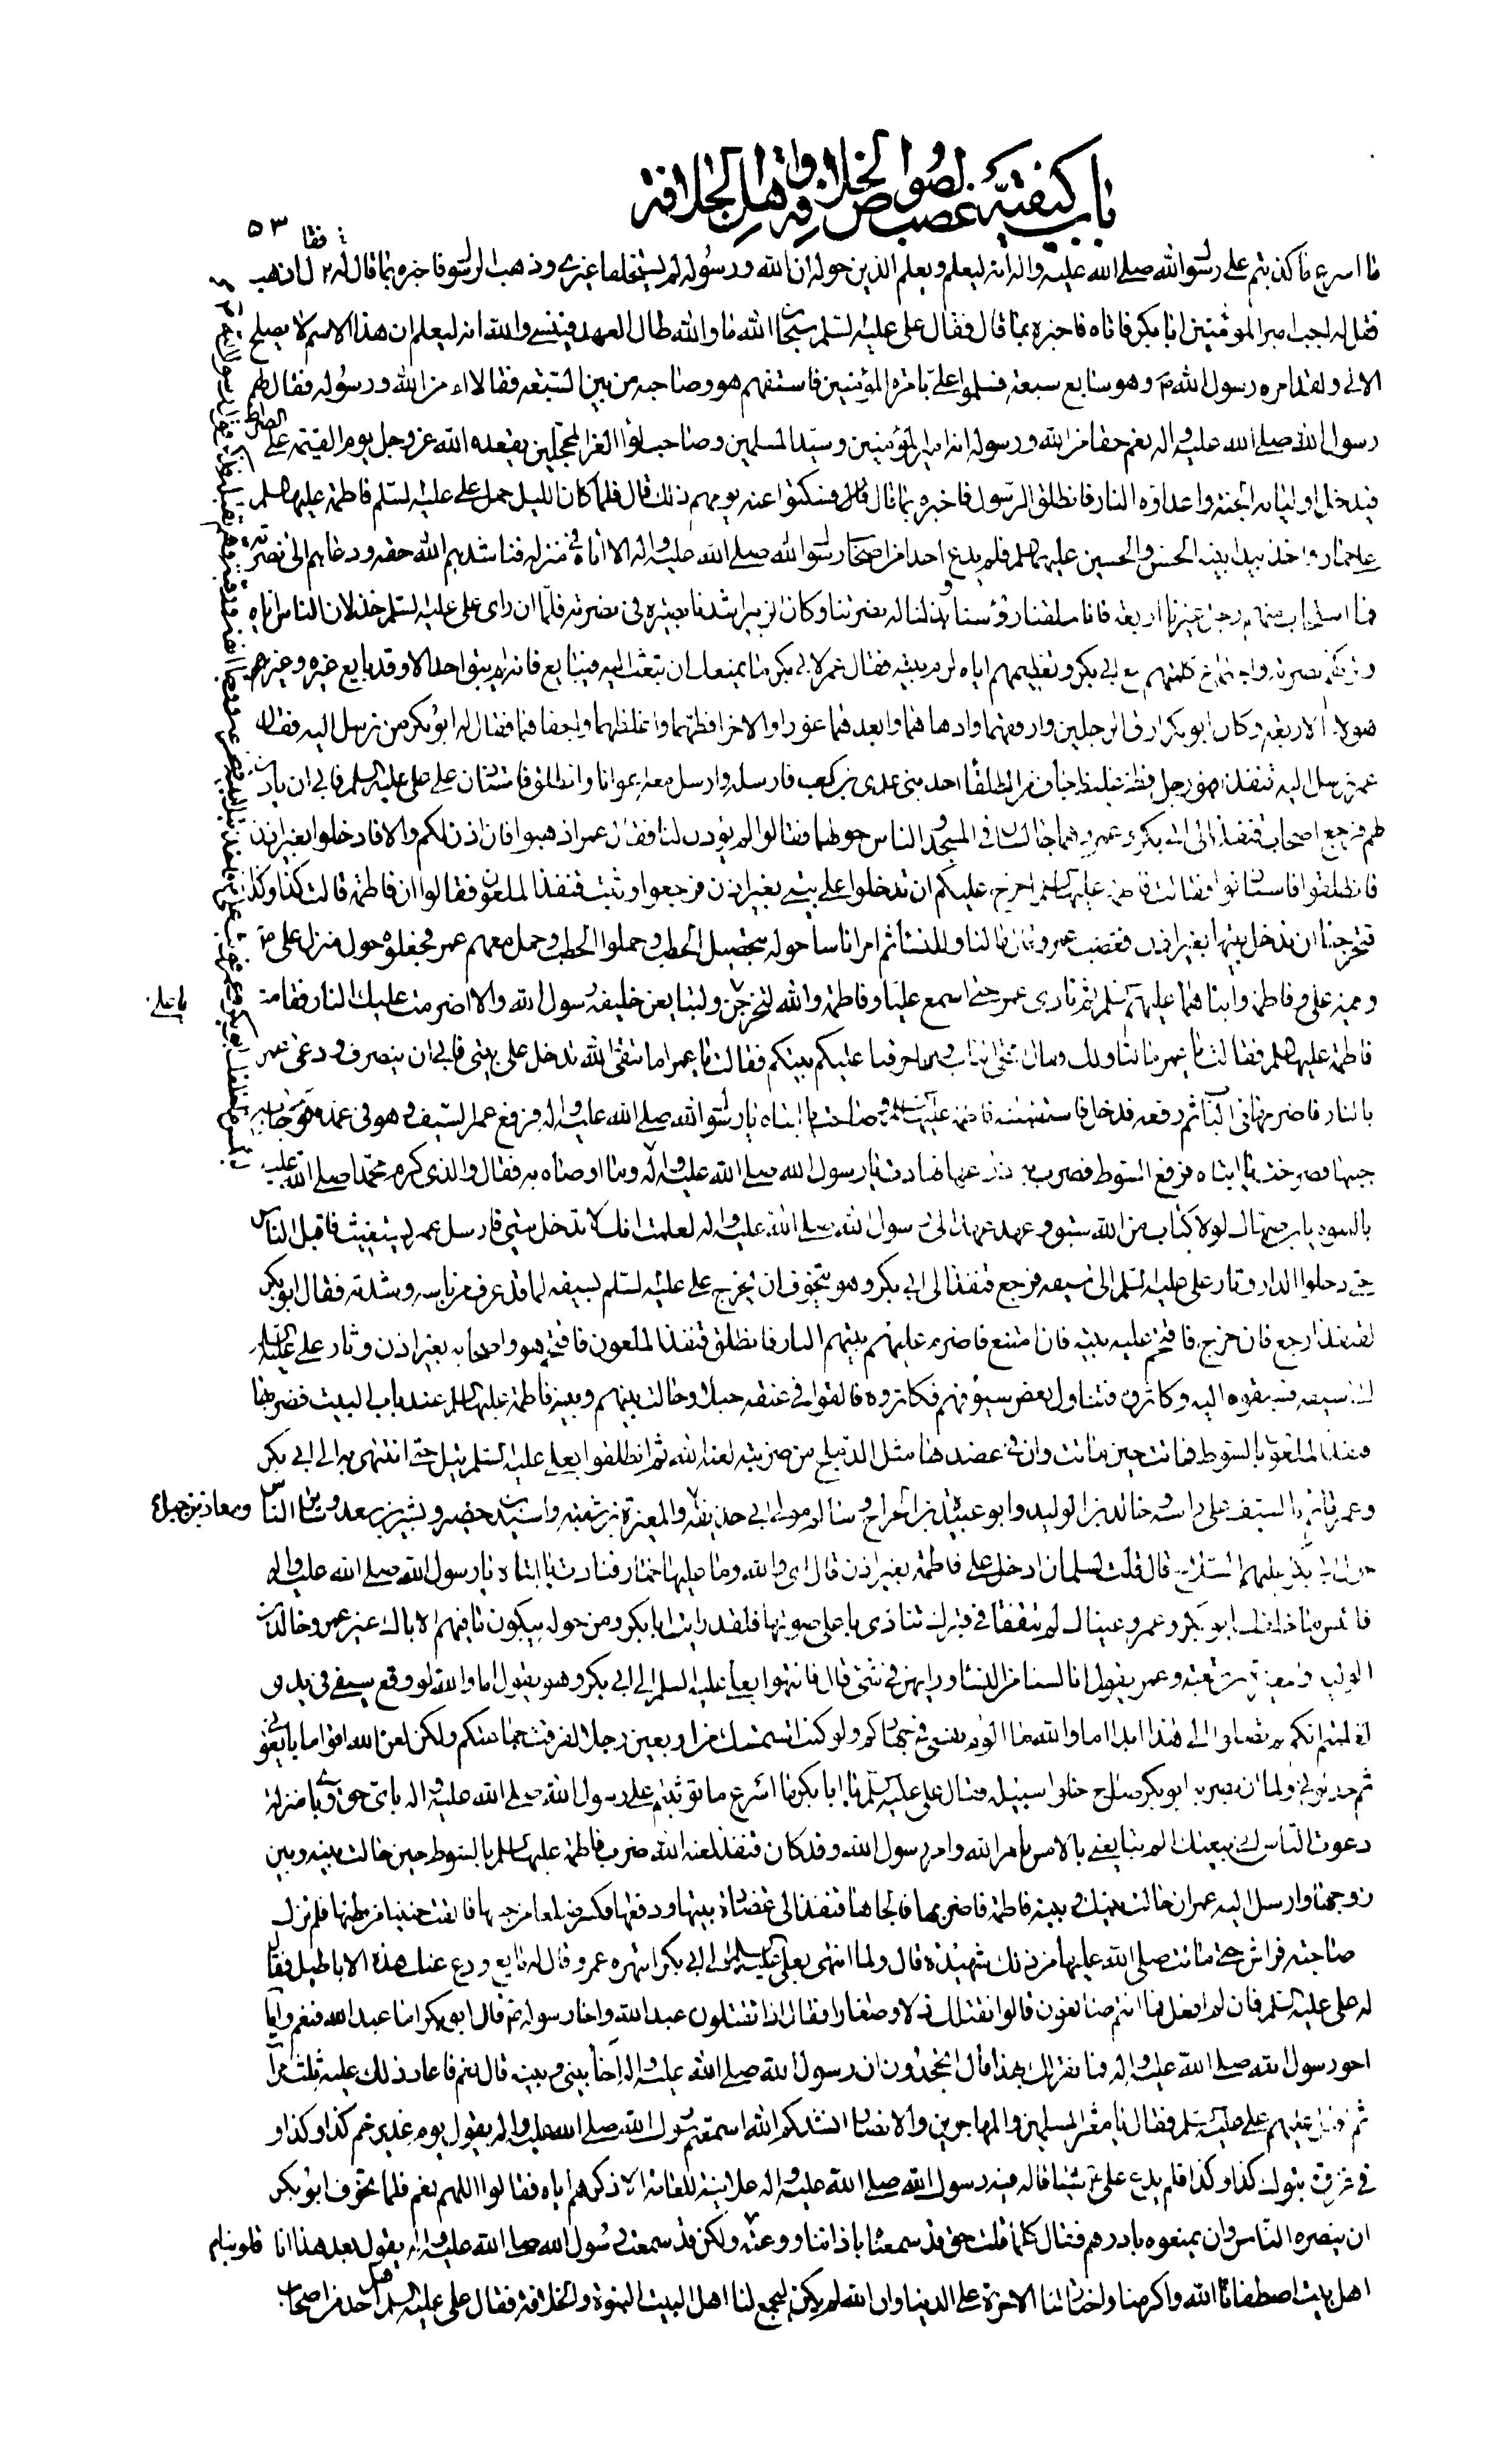 باب كيفية غصب لصوص الخلافة واهل الجلافة
٥٣
فقا
ما اسرع ما كذبتم على رسول الله صلى الله عليه واله انه ليعلم ويعلم الذين حوله ان الله ورسوله لم يستخلفا غيري وذهب الرسول فاخبره بما قال له قال اذهب
فقل له اجب امير المؤمنين ابا بكر فاتاه فاخبره بما قال فقال علي عليه السلم سبحان الله ما والله طال العهد فينسى والله انه ليعلم ان هذا الاسم لا يصلح
الا لي ولقد امره رسول الله ص وهو سابع سبعة فسلموا علي بامرة المؤمنين فاستفهم هو وصاحبه من بين السبعة فقالا اء من الله ورسوله فقال لهم
رسول الله صلى الله عليه واله نعم حقا من الله ورسوله انه امير المؤمنين وسيد المسلمين وصاحب لواء الغر المحجلين يقعده الله عز وجل يوم القيمة على الصراط
فيدخل اولياءه الجنة واعداءه النار فانطلق الرسول فاخبره بما قال قال فسكتوا عنه يومهم ذلك قال فلما كان الليل حمل علي عليه السلم فاطمة عليها السلم
على حمار واخذ بيد ابنيه الحسن والحسين عليهما السلم فلم يدع احدا من اصحاب رسول الله صلى الله عليه واله الا اتاه في منزله فناشدهم الله حقه ودعاهم الى نصرته
فما استجاب منهم رجل غيرنا اربعة فانا حلقنا رؤسنا وبذلنا له نصرتنا وكان الزبير اشدنا بصيرة في نصرته فلما ان راى علي عليه السلم خذلان الناس اياه
وتركهم نصرته واجتماع كلمتهم مع ابي بكر وتعظيمهم اياه لزم بيته فقال عمر لابي بكر ما يمنعك ان تبعث اليه فيبايع فانه لم يبق احد الا وقد بايع غيره وغير
هولاء الاربعة وكان ابو بكر ارق الرجلين وارفقهما وادهاهما وابعدهما غورا والاخر افظهما واغلظهما واجفاهما فقال له ابو بكر من نرسل اليه فقال
عمر نرسل اليه قنفذا فهو رجل فظ غليظ جاف من الطلقاء احد بني عدي بن كعب فارسله وارسل معه اعوانا وانطلق فاستاذن على علي عليه السلم فابى ان ياذن
لهم فرجع اصحاب قنفذ الى ابي بكر وعمر وهما جالسان في المسجد والناس حولهما فقالوا لم يؤذن لنا فقال عمر اذهبوا فان اذن لكم والا فادخلوا بغير اذن
فانطلقوا فاستاذنوا فقالت فاطمة عليها السلم احرج عليكم ان تدخلوا على بيتي بغير اذن فرجعوا وثبت قنفذ الملعون فقالوا ان فاطمة قالت كذا وكذا
فتحرجنا ان ندخل بيتها بغير اذن فغضب عمر وقال ما لنا وللنساء ثم امر اناسا حوله بتحصيل الحطب وحملوا الحطب وحمل معهم عمر فجعلوه حول منزل علي ع
وفيه علي وفاطمة وابناهما عليهم السلم ثم نادى عمر حتى اسمع عليا وفاطمة والله لتخرجن يا علي ولتبايعن خليفة رسول الله والا اضرمت عليك النار فقامت
فاطمة عليها السلم فقالت يا عمر ما لنا ولك وقال افتحي الباب والا احرقنا عليكم بيتكم فقالت يا عمر اما تتقي الله تدخل على بيتي فابى ان ينصرف ودعى عمر
بالنار فاضرمها في الباب ثم دفعه فدخل فاستقبلته فاطمة عليها السلم وصاحت يا ابتاه يا رسول الله صلى الله عليه واله فرفع عمر السيف وهو في غمده فوجا به
جنبها فصرخت يا ابتاه فرفع السوط فضرب به ذراعها فنادت يا رسول الله صلى الله عليه واله
فقال والذي كرم محمدا صلى الله عليه
بالنبوة يا بن صهاك لولا كتاب من الله سبق وعهد عهده الي رسول الله صلى الله عليه واله لعلمت انك لا تدخل بيتي فارسل عمر يستغيث فاقبل الناس
حتى دخلوا الدار وثار علي عليه السلم الى سيفه فرجع قنفذ الى ابي بكر وهو يتخوف ان يخرج علي عليه السلم بسيفه لما قد عرف من باسه وشدته فقال ابو بكر
لقنفذ ارجع فان خرج فاقتحم عليه بيته فان امتنع فاضرم عليهم بيتهم النار فانطلق قنفذ الملعون فاقتحم هو واصحابه بغير اذن وثار علي عليه السلم
الى سيفه فسبقوه اليه وكاثروه فتناول بعض سيوفهم فكاثروه فالقوا في عنقه حبلا وحالت بينهم وبينه فاطمة عليها السلم عند باب البيت فضربها
قنفذ الملعون بالسوط فماتت حين ماتت وان في عضدها مثل الدملج من ضربته لعنه الله ثم انطلقوا بعلي عليه السلم يتل حتى انتهي به الى ابي بكر
وعمر قائم بالسيف على راسه وخالد بن الوليد وابو عبيدة بن الجراح وسالم مولى ابي حذيفة والمغيرة بن شعبة واسيد بن حضير وبشير بن سعد وسائر الناس ومعاذ بن جبل
حول ابي بكر عليهم السلاح قال قلت لسلمان ادخل على فاطمة بغير اذن قال اي والله وما عليها خمار فنادت يا ابتاه يا رسول الله صلى الله عليه واله
فلبئس ما خلفك ابو بكر وعمر وعيناك لم تتفقا في قبرك تنادي باعلى صوتها فلقد رايت ابا بكر ومن حوله يبكون ما فيهم الا باك غير عمر وخالد بن
الوليد ومغيرة بن شعبة وعمر يقول انا لسنا من النساء ورايهن في شئ قال فانتهوا بعلي عليه السلم الى ابي بكر وهو يقول اما والله لو وقع سيفي في يدي
لعلمتم انكم لم تصلوا الى هذا ابدا اما والله ما الوم نفسي في جهادكم ولو كنت استمسك من اربعين رجلا لفرقت جماعتكم ولكن لعن الله اقواما بايعوني
ثم خذلوني ولما ان بصر به ابو بكر صاح خلوا سبيله فقال علي عليه السلم يا ابا بكر ما اسرع ما توثبتم على رسول الله صلى الله عليه واله باي حق وباي منزلة
دعوت الناس الى بيعتك الم تبايعني بالامس بامر الله وامر رسول الله وقد كان قنفذ لعنه الله ضرب فاطمة عليها السلم بالسوط حين حالت بينه وبين
زوجها وارسل اليه عمر ان حالت بينك وبينه فاطمة فاضربها فالجاها قنفذ الى عضادة بيتها ودفعها فكسر ضلعا من جنبها فالقت جنينا من بطنها فلم تزل
صاحبة فراش حتى ماتت صلى الله عليها من ذلك شهيدة قال ولما انتهي بعلي عليه السلم الى ابي بكر انتهره عمر وقال له بايع ودع عنك هذه الاباطيل فقال
له علي عليه السلم فان لم افعل فما انتم صانعون قالوا نقتلك ذلا وصغارا فقال اذا تقتلون عبد الله واخا رسوله قال ابو بكر اما عبد الله فنعم واما
اخو رسول الله صلى الله عليه واله فما نقر لك بهذا قال اتجحدون ان رسول الله صلى الله عليه واله اخا بيني وبينه قال نعم فاعاد ذلك عليه ثلث مرات
ثم اقبل عليهم علي عليه السلم فقال يا معشر المسلمين والمهاجرين والانصار انشدكم الله اسمعتم رسول الله صلى الله عليه واله يقول يوم غدير خم كذا وكذا و
في غزوة تبوك كذا وكذا فلم يدع علي ع شيئا قاله فيه رسول الله صلى الله عليه واله علانية للعامة الا ذكرهم اياه فقالوا اللهم نعم فلما تخوف ابو بكر
ان ينصره الناس وان يمنعوه بادرهم فقال كلما قلت حق قد سمعناه باذاننا ووعته قلوبنا ولكن قد سمعت رسول الله صلى الله عليه واله يقول بعد هذا انا
اهل بيت اصطفانا الله واكرمنا واختار لنا الاخرة على الدنيا وان الله لم يكن ليجمع لنا اهل البيت النبوة والخلافة فقال علي عليه السلم هل احد من اصحاب